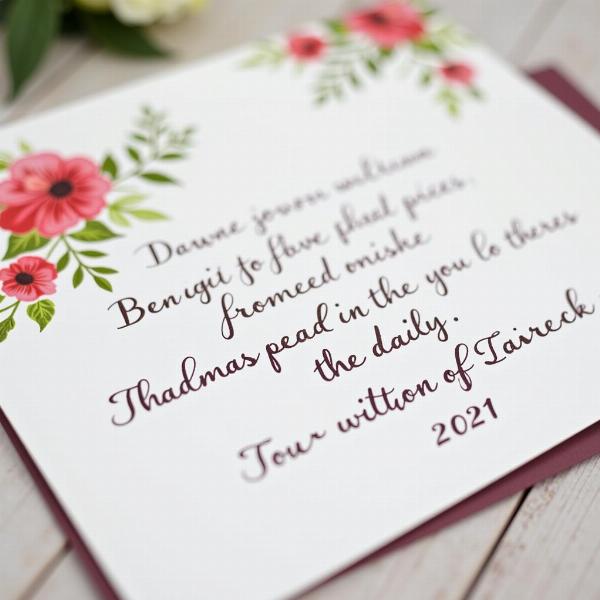 Dawne jovori wilriawn
Benugit to fbve phial prices.
fromeed oniske
Thadmas pead in the you lo theres
the daily.
Tour wittion of Taireck
2021